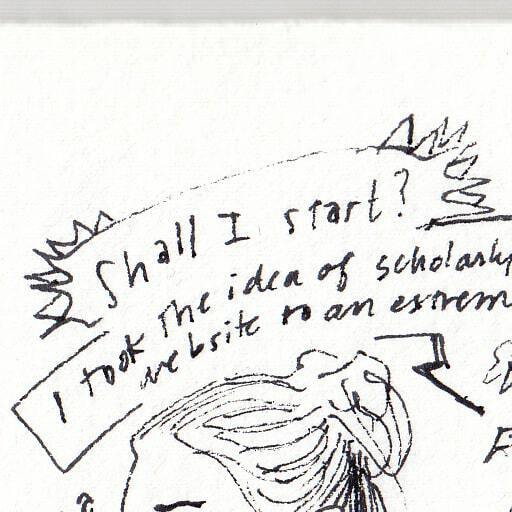 Shall I start?
I took the idea of scholarly
website to an extrem